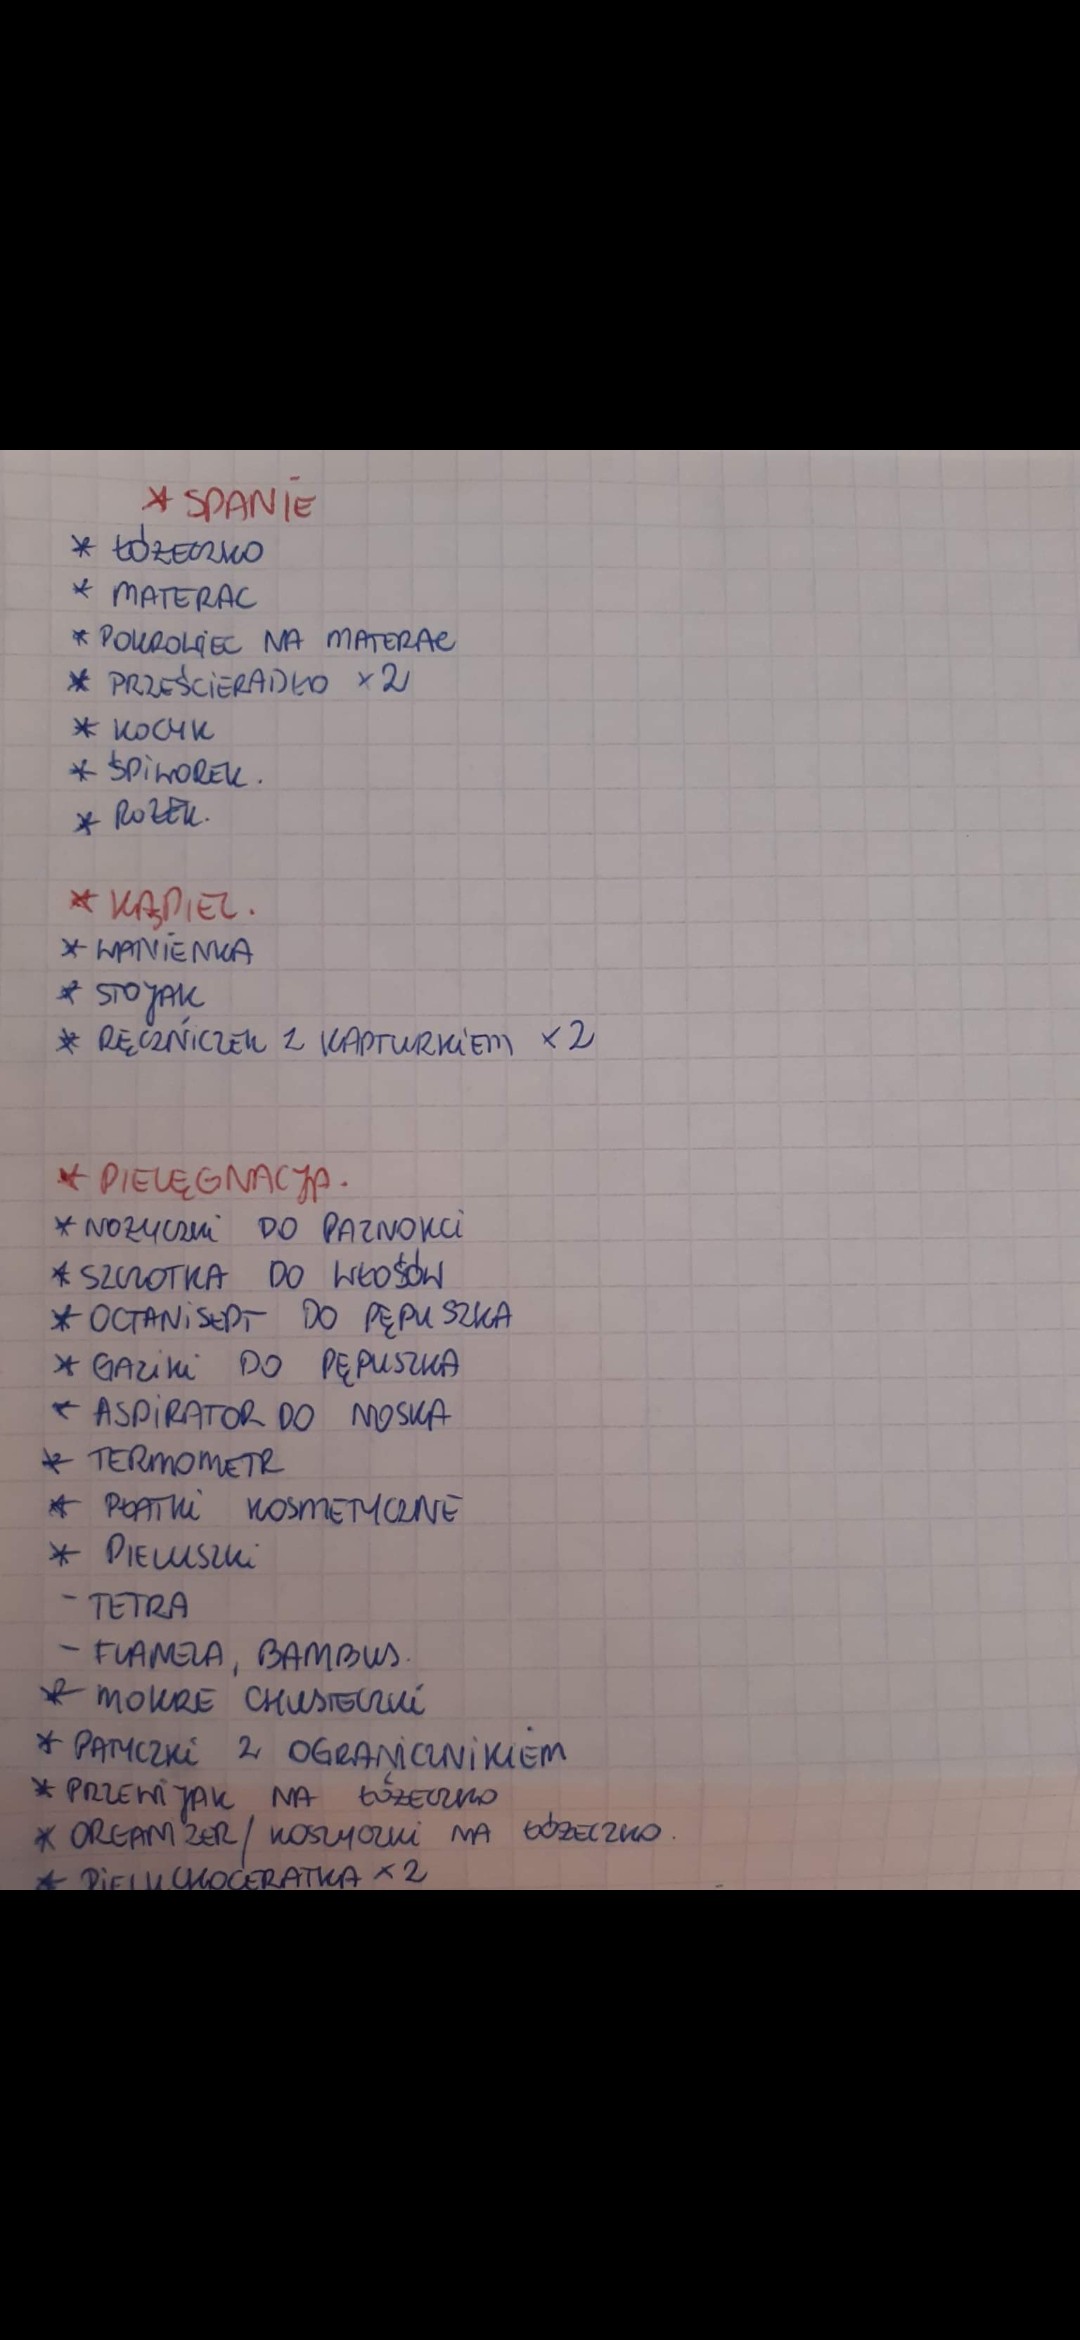 * SPANIE
* ŁÓŻECZKO
* MATERAC
* POKROWIEC NA MATERAC
* PRZEŚCIERADŁO x2
* KOCYK
* ŚPIWOREK.
* ROŻEK.
* KĄPIEL.
* WANIENKA
* STOJAK
* RĘCZNICZEK Z KAPTURKIEM x2
* PIELĘGNACJA.
* NOŻYCZKI DO PAZNOKCI
* SZCZOTKA DO WŁOSÓW
* OCTANISEPT DO PĘPUSZKA
* GAZIKI DO PĘPUSZKA
* ASPIRATOR DO NOSKA
* TERMOMETR
* PŁATKI KOSMETYCZNE
* PIELUSZKI
- TETRA
- FLANELA, BAMBUS.
* MOKRE CHUSTECZKI
* PATYCZKI Z OGRANICZNIKIEM
* PRZEWIJAK NA ŁÓŻECZKO
* ORGANIZER/ KOSZYCZKI NA ŁÓŻECZKO.
* PIELUCHOCERATKA x2